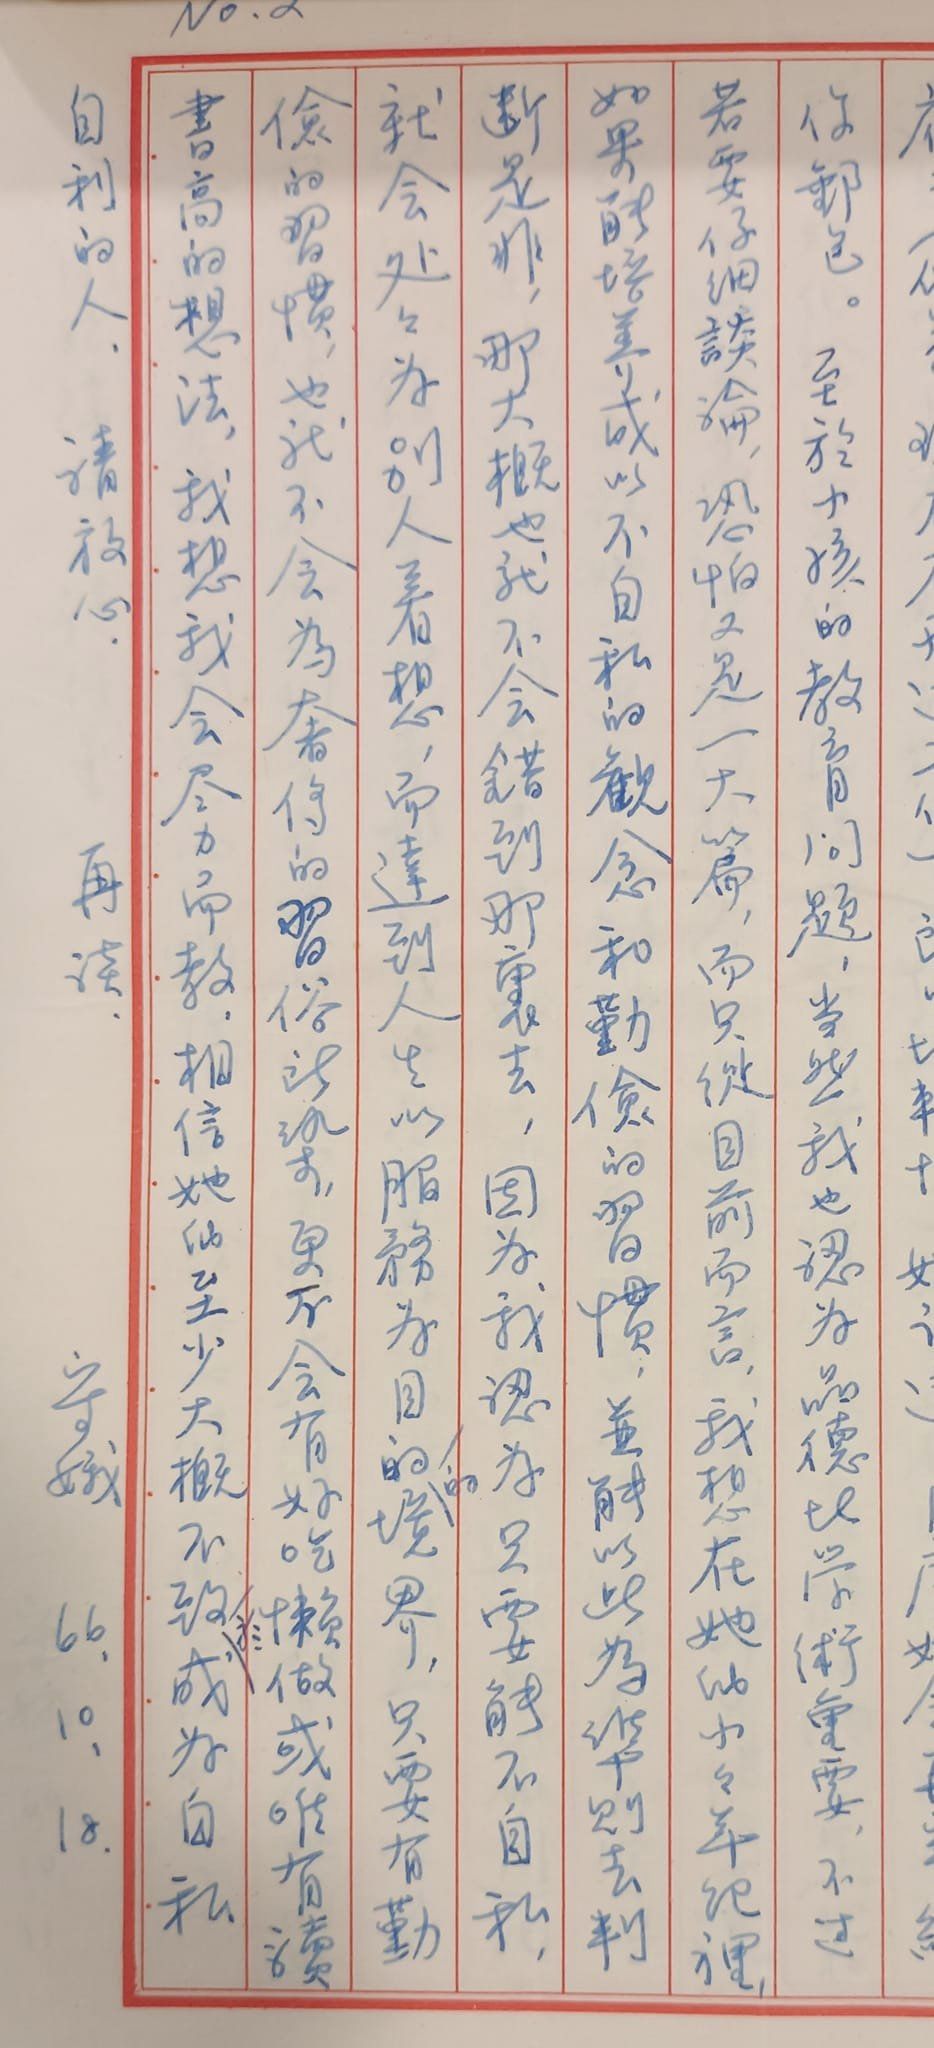 No. 2
你郵包。至於小孩的教育問題，当然我也認為品德比学術重要，不过
若要仔細談論，恐怕又是一大篇，而只從目前而言，我想在她们小々年纪裡，
如果能培养成以不自私的觀念和勤儉的習慣，並能以此為準則去判
斷是非，那大概也就不会錯到那裏去，因为我認为只要能不自私，
就会处々为别人着想，而達到人生以服務为目的的境界，只要有勤
儉的習慣，也就不会為奢侈的習俗所染，更不会有好吃懒做或唯有讀
書高的想法，我想我会尽力而教，相信她们至少大概不致成为自私
自利的人，請放心．再谈．
守娥 66. 10. 18.